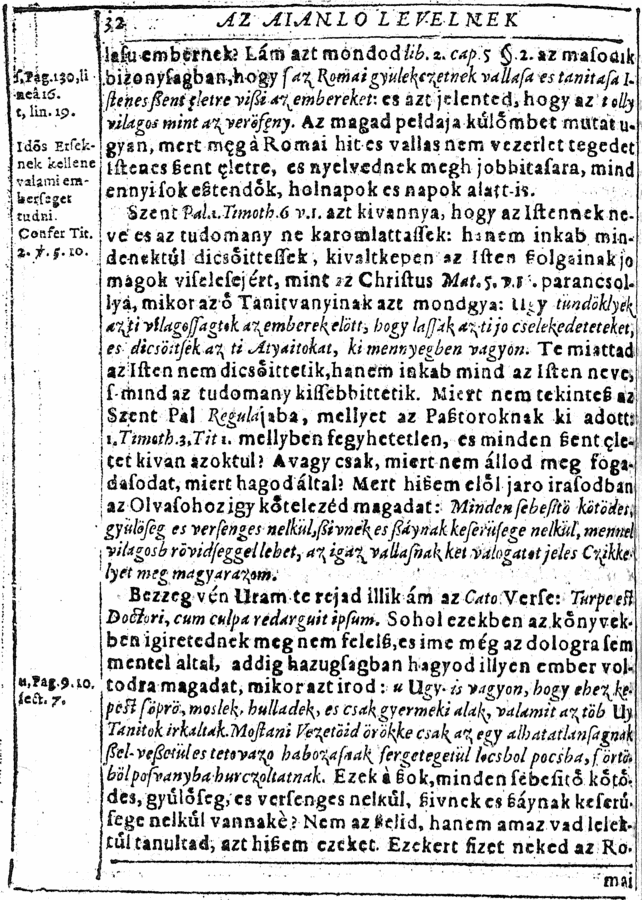 32
AZ AIANLO LEVELNEK
laſu embernek? Lám azt mondod lib. 2. cap. 5 §. 2. az maſodik
bizonyſagban, hogy ſ az Romai gyulekezetnek vallaſa es tanitaſa I-
ſtenes ßent ęletre viſzi az embereket: es azt jelented, hogy az t olly
vilagos mint az verőfęny. Az magad peldaja kůlőmbet mutat u-
gyan, mert męg à Romai hit es vallas nem vezerlet tegedet
iſtenes ßent ęletre, es nyelvednek megh jobbitaſara, mind
ennyi ſok eßtendők, holnapok es napok alatt-is.
Szent Pal. 1. Timoth. 6 v. 1. azt kivannya, hogy az Iſtennek ne-
ve es az tudomany ne karomlattaſſek: hanem inkab min-
denektůl dicsőitteſſek, kivaltkepen az Iſten ßolgainak jo
magok viſeleſejért, mint az Chriſtus Mat. 5. parancsol-
lya, mikor az ő Tanitvanyinak azt mondgya: Ugy tündöklyęk
az ti vilagoſſagtok az emberek elött, hogy laſſak az ti jo cselekedeteteket,
es dicsöitſek az ti Atyaitokat, ki mennyegben vagyon. Te miattad
az Iſten nem dicsőittetik, hanem inkab mind az Iſten neve,
ſ-mind az tudomany kiſſebbittetik. Miert nem tekinteß az
Szent Pal Regulajaba, mellyet az Paßtoroknak ki adott:
1. Timoth. 3, Tit 1. mellyben fegyhetetlen, es minden ßent ęle-
tet kivan azoktul? Avagy csak, miert nem állod meg foga-
daſodat, miert hagod által? Mert hißem elől jaro iraſodban
az Olvaſohoz igy kőtelezéd magadat: Minden ſebeſitö kötödes,
gyülöſeg es verſenges nelkül, ßivnek es ßáynak keſerüſege nelkül, mennel
vilagosb rövidſeggel lehet, az igaz vallaſnak ket valogatot jeles Czikke-
lyét meg magyarazom.
Bezzeg vén Uram te rejad illik ám az Cato Verſe: Turpe eſt
Doctori, cum culpa redarguit ipſum. Sohol ezekben az kőnyvek-
ben igiretednek meg nem felelß, es ime még az dologra ſem
mentel altal, addig hazugſagban hagyod illyen ember vol-
todra magadat, mikor azt irod: u Ugy-is vagyon, hogy ehez ke-
pest ſöprö, moslek, hulladek, es csak gyermeki alak, valamit az töb Uy
Tanitok irkaltak. Moſtani Vezetöid örökke csak az egy alhatatlanſagnak
ßel-veßetül es tetovazo habozaſnak fergetegetül locsbol pocsba, ſ örtö-
böl poſvanyba hurczoltatnak. Ezek à ßok, minden ſebeſitő kőtő-
des, gyůlőſeg, es verſenges nelkůl, ßivnek es ßáynak keſerů-
ſege nelkůl vannakè? Nem az ßelid, hanem amaz vad lelek-
tůl tanultad, azt hißem ezeket. Ezekert fizet neked az Ro-
mai
ſ, Pag. 130, li
neâ 16.
t, lin. 19.
Idős Erſek-
nek kellene
valami em-
berſeget
tudni.
Confer Tit.
2. ℣. 5. 10.
u, Pag. 9. 10.
ſect. 7.